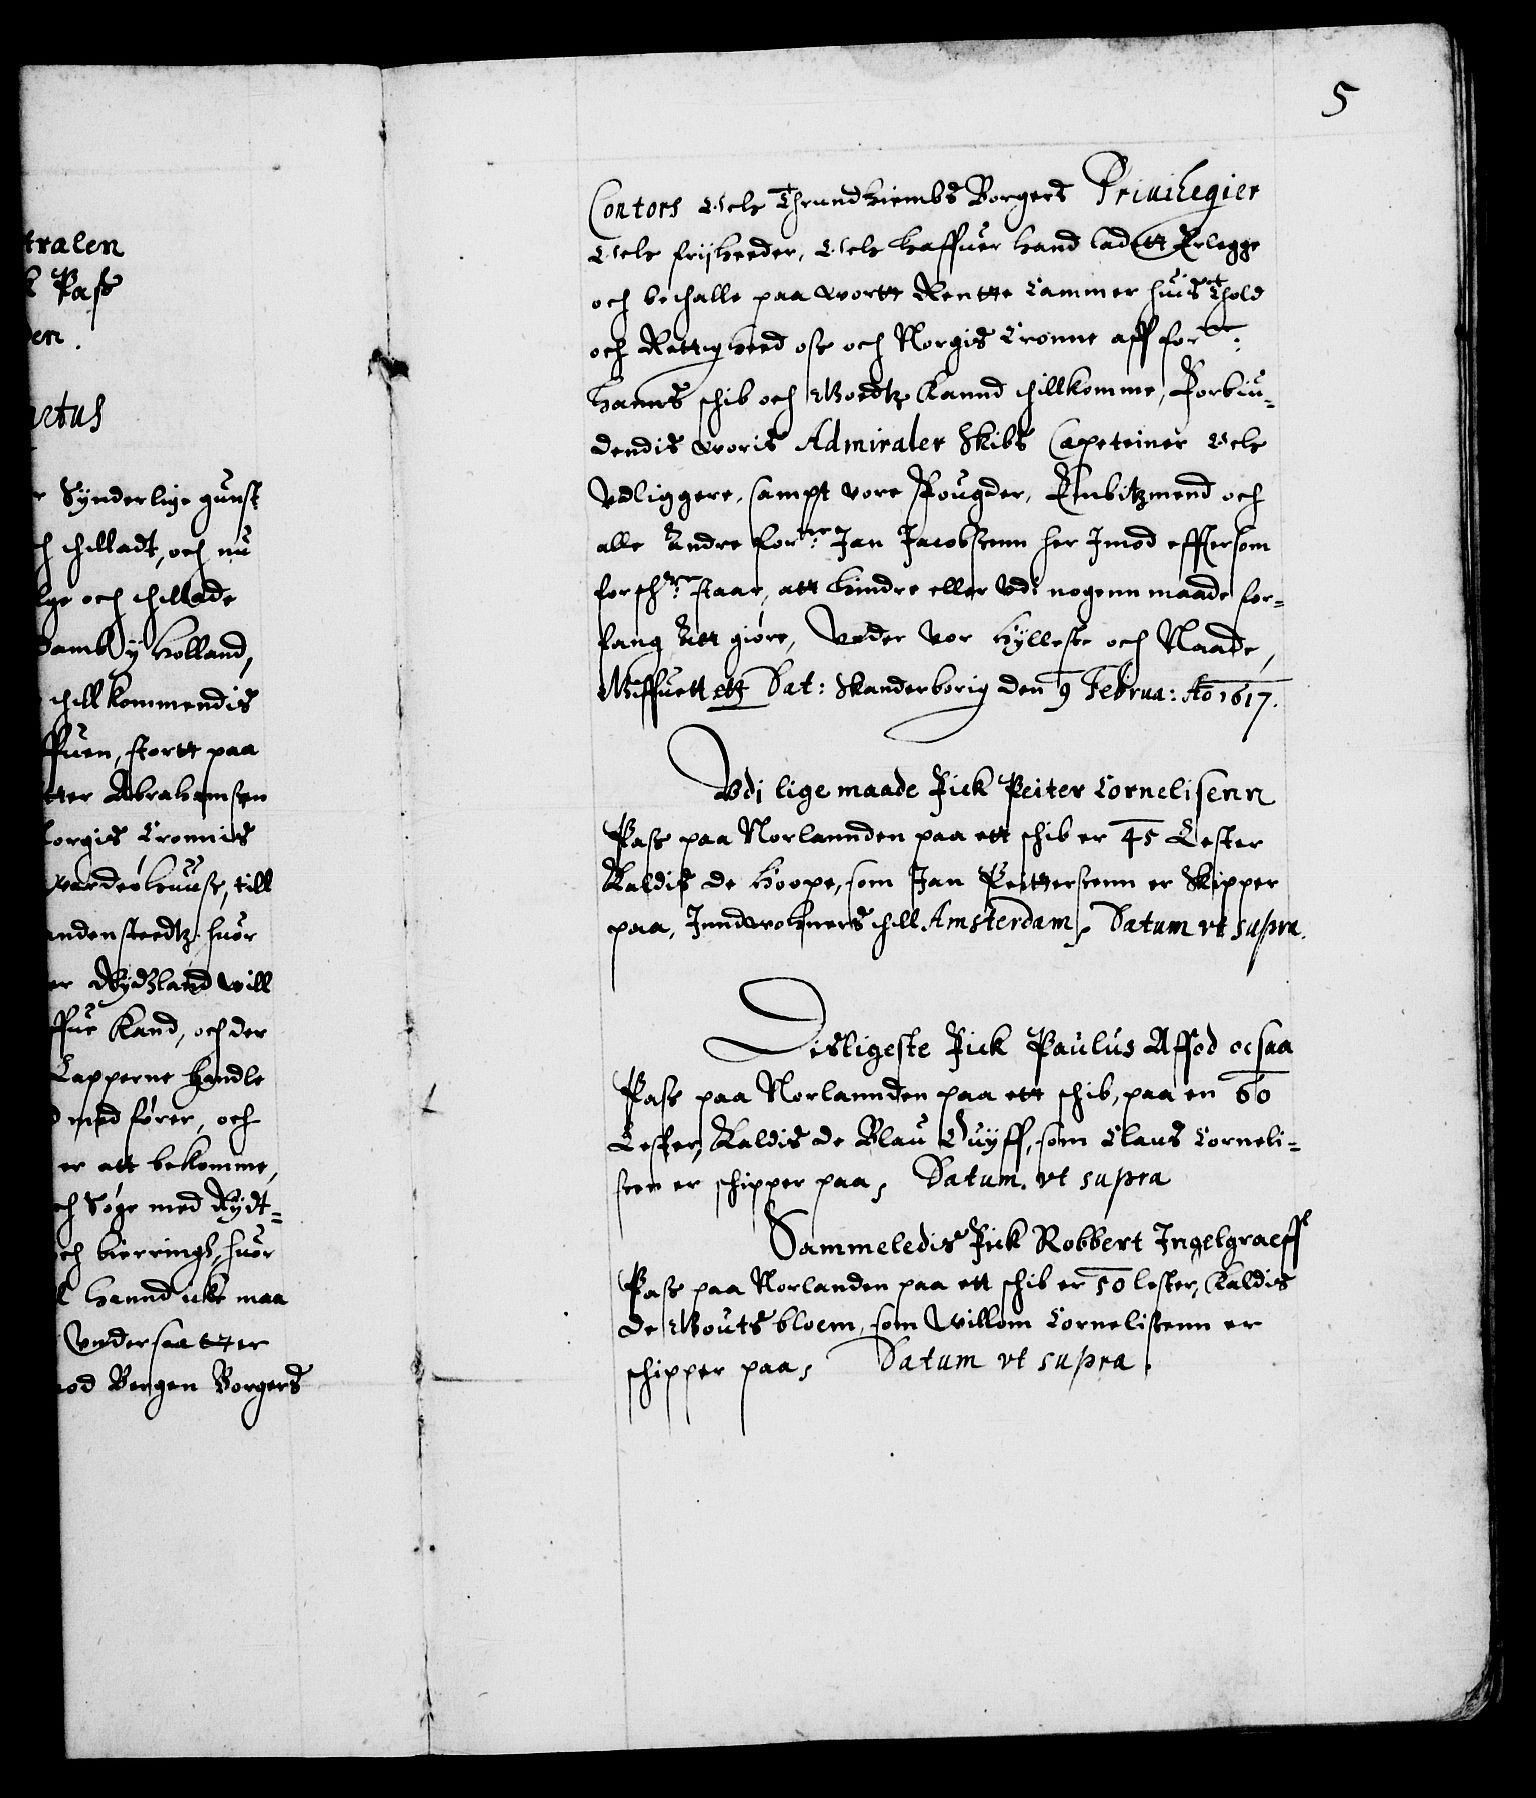 tralen
Pass
en.
etus
Synderlige gunst
och thilladt, och nu
och thillade
damb y Holland,
thill kommendis
ffuen, stortt paa
tter Abrahamsen
Norgis Cronnis
wardeøhuuss, till
andensteedtz, huor
er Rydtzland will
ffue Kand, och der
Lapperne Handle
med fører, och
er att bekomme,
och Søge med Rydt-
och kierrings, huor
Hannd icke maa
Undersaatter
mod Bergen Borgers
5
Contors Och Thrundhiembs Borgers Privilegier
Och frijheeder, Och Haffuer Hand ladett Erlegge
och bethalle paa wortt Rentte Cammer huis Thold
och Rettigheed oss och Norgis Cronne aff forne:
Hanns schib och Goedtz Kannd thillkomme, Forbiu-
dendis woris Admiraler Skibs Capeteiner Och
Udliggere, sampt vore Fougder, Embitzmend och
alle Andre forne: Jan Jacobssenn her Imod effterson
forschne: staar, att Hindre eller Udi nogenn maade for-
fang Att giøre, Under Vor Hylleste och Naade,
Giffuett etz Dat: Skanderborig den 9 Februa: Ao 1617.
Udi lige maade Fick Peiter Cornelisenn
Pass paa Norlannden paa ett schib er 45 Lester
Kaldis de Hoope, som Jan Peitterssenn er Skipper
paa, Inndwohners thill Amsterdam, Datum vt supra.
Disligeste Fick Paulus Affod ocsaa
Pass paa Norlannden paa ett schib, paa en 60
Lester, Kaldis de Blau Duyff, som Claus Corneli-
ssen er schipper paa, Datum. vt supra
Sammeledis Fick Robbert Ingelgraeff
Pass paa Norlanden paa ett schib er 50 lester, Kaldis
de Gouts bloem, som Willom Cornelissenn er
schipper paa, Datum vt supra.